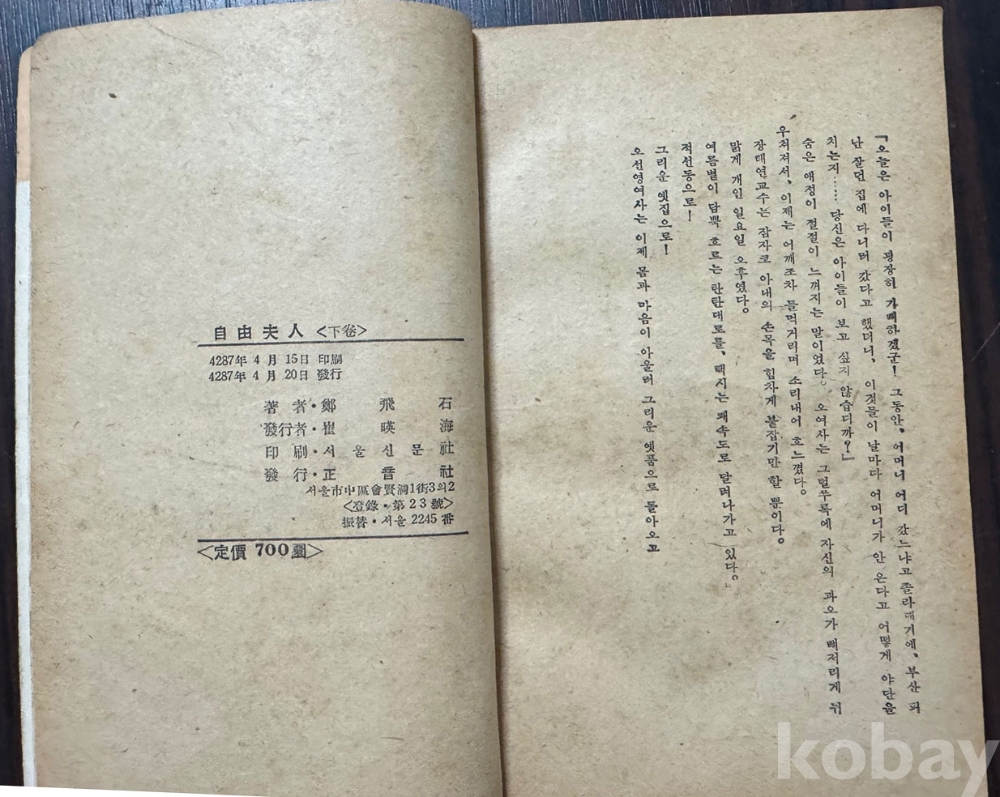 『오늘은 아이들이 굉장히 기뻐하겠군! 그동안, 어머니 어디 갔느냐고 졸라대기에, 부산 피
난 살던 집에 다니러 갔다고 했더니, 이것들이 날마다 어머니가 안 온다고 어떻게 야단을
치는지…… 당신은 아이들이 보고 싶지 않습디까?』
숨은 애정이 절절이 느껴지는 말이였다. 오여사는 그럴쑤록에 자신의 과오가 뼈저리게 뉘
우쳐져서, 이제는 어깨조차 들먹거리며 소리내어 흐느꼈다.
장태연교수는 잠자코 아내의 손목을 힘차게 붙잡기만 할 뿐이다.
맑게 개인 일요일 오후였다.
여름볕이 담뿍 흐르는 탄탄대로를, 택시는 쾌속도로 달려나가고 있다.
적선동으로!
그리운 옛집으로!
오선영여사는 이제 몸과 마음이 아울러 그리운 옛품으로 돌아오고
自由夫人 <下卷>
4287年 4月 15日 印刷
4287年 4月 20日 發行
著者・鄭飛石
發行者・崔暎海
印刷・서울신문社
發行・正音社
서울市中區會賢洞1街3의2
<登錄・第23號>
振替・서울 2245番
<定價 700圜>
kobay